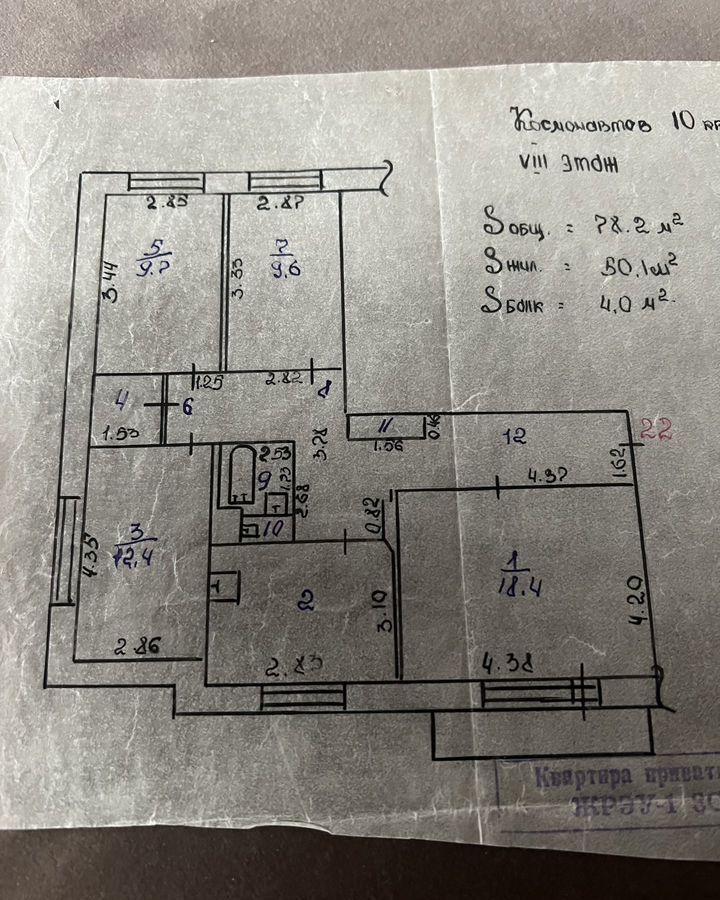 Космонавтов 10
VIII этаж
Sобщ. = 78.2 м²
Sжил. = 50.1 м²
Sбалк = 4,0 м².
2.85
2.87
5
9.7
7
9.6
3.44
3.33
1.25
2.82
8
4
6
1.53
11
1.56
0.46
12
22
3.78
2.53
9
1.73
2.68
10
4.37
1.62
0.82
3
12.4
4.35
2
3.10
1
18.4
4.20
2.86
2.83
4.38
Квартира
ЖРЭУ-1